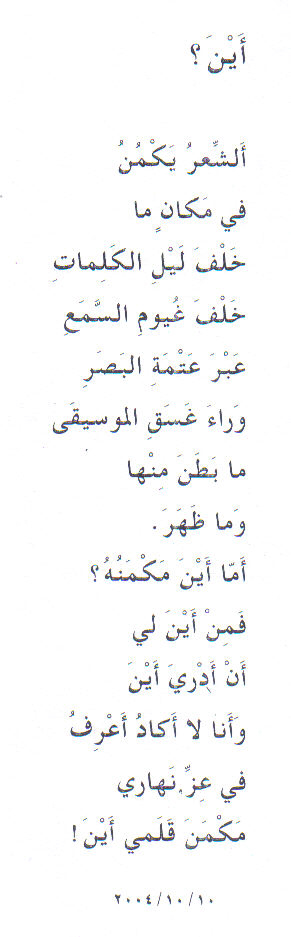 أَيْنَ؟
أَلشِّعرُ يَكْمُنُ
في مَكانٍ ما
خَلْفَ لَيْلِ الكَلِماتِ
خَلْفَ غُيومِ السَّمَعِ
عَبْرَ عَتْمَةِ البَصَرِ
وَراءَ غَسَقِ الموسيقَى
ما بَطَنَ مِنْها
وَما ظَهَرَ.
أَمّا أَيْنَ مَكْمَنُهُ؟
فَمِنْ أَيْنَ لي
أَنْ أَدْرِيَ أَيْنَ
وَأَنا لا أَكادُ أَعْرِفُ
في عِزِّ نَهاري
مَكْمَنَ قَلَمي أَيْنَ!
٢٠٠٤/١٠/١٠